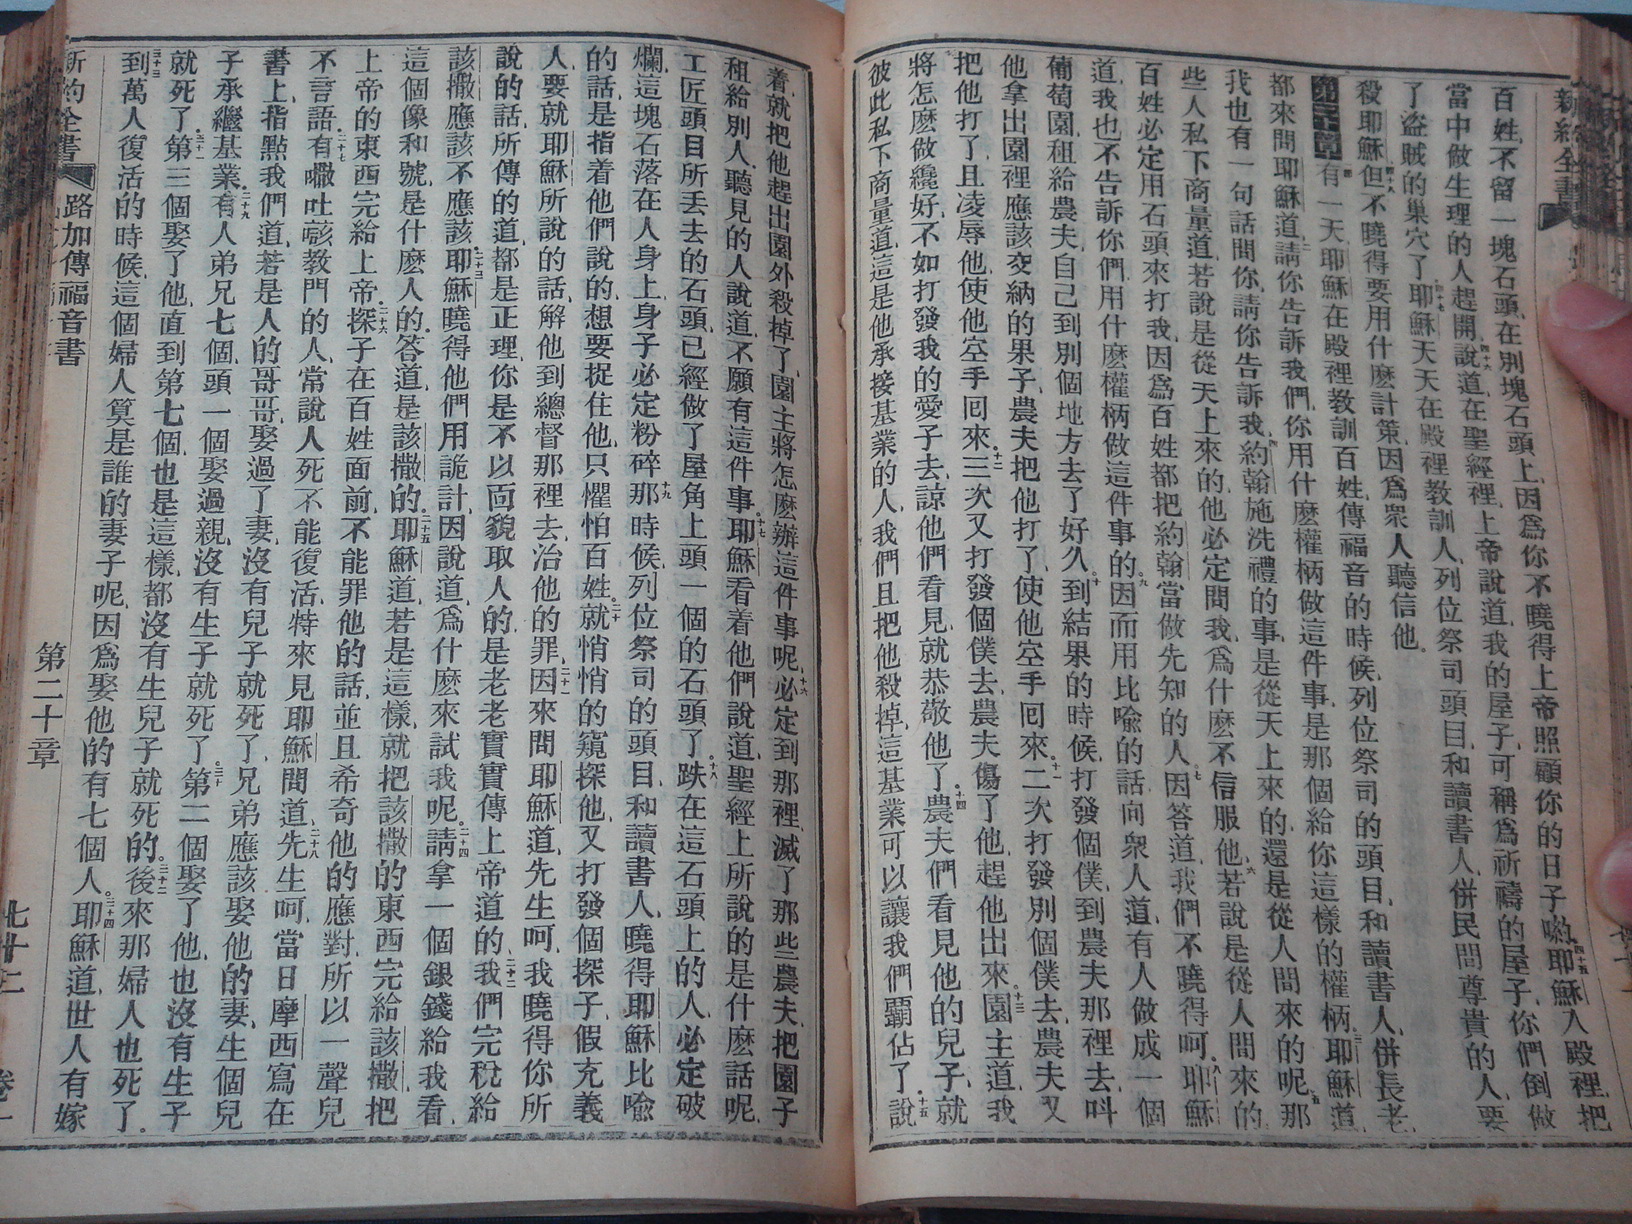 新約全書
百姓、不留一塊石頭、在別塊石頭上、因爲你不曉得上帝照顧你的日子喲、四十五耶穌入殿裡、把
當中做生理的人趕開、四十六說道、在聖經裡、上帝說道、我的屋子、可稱爲祈禱的屋子、你們倒做
了盜賊的巢穴了、四十七耶穌天天在殿裡教訓人、列位祭司頭目、和讀書人、併民間尊貴的人、要
殺耶穌、四十八但不曉得要用什麽計策、因爲衆人聽信他。
第二十章 一有一天、耶穌在殿裡教訓百姓、傳福音的時候、列位祭司的頭目、和讀書人、併長老、
都來問耶穌道、二請你告訴我們、你用什麽權柄做這件事、是那個給你這樣的權柄、三耶穌道、
我也有一句話問你、請你告訴我、四約翰施洗禮的事、是從天上來的、還是從人間來的呢、五那
些人私下商量道、若說是從天上來的、他必定問我、爲什麽不信服他、六若說是從人間來的、
百姓必定用石頭來打我、因爲百姓都把約翰當做先知的人、七因答道、我們不曉得呵、八耶穌
道、我也不告訴你們用什麽權柄做這件事的。九因而用比喻的話向衆人道、有人做成一個
葡萄園、租給農夫、自己到別個地方去了好久、十到結果的時候、打發個僕、到農夫那裡去、叫
他拿出園裡應該交納的果子、農夫把他打了、使他空手囘來、十一二次打發別個僕去、農夫又
把他打了、且凌辱他、使他空手囘來、十二三次又打發個僕去、農夫傷了他、趕他出來、十三園主道、我
將怎麽做纔好、不如打發我的愛子去、諒他們看見、就恭敬他了、十四農夫們看見他的兒子、就
彼此私下商量道、這是他承接基業的人、我們且把他殺掉、這基業可以讓我們霸佔了、十五說
着、就把他趕出園外殺掉了、園主將怎麽辦這件事呢、十六必定到那裡、滅了那些農夫、把園子
租給別人、聽見的人說道、不願有這件事、十七耶穌看着他們說道、聖經上所說的是什麽話呢、
工匠頭目所丟去的石頭、已經做了屋角上頭一個的石頭了、十八跌在這石頭上的人、必定破
爛、這塊石落在人身上、身子必定粉碎、十九那時候、列位祭司的頭目、和讀書人、曉得耶穌比喻
的話、是指着他們說的、想要捉住他、只懼怕百姓、二十就悄悄的窺探他、又打發個探子、假充義
人、要就耶穌所說的話、解他到總督那裡去、治他的罪、二十一因來問耶穌道、先生呵、我曉得你所
說的話、所傳的道、都是正理、你是不以面貌取人的、是老老實實傳上帝道的、二十二我們完稅給
該撒、應該不應該、二十三耶穌曉得他們用詭計、因說道、爲什麽來試我呢、二十四請拿一個銀錢給我看、
這個像和號、是什麽人的、答道、是該撒的、二十五耶穌道、若是這樣、就把該撒的東西完給該撒、把
上帝的東西完給上帝、二十六探子在百姓面前、不能罪他的話、並且希奇他的應對、所以一聲兒
不言語、二十七有㘔吐㗲教門的人、常說人死不能復活、特來見耶穌問道、二十八先生呵、當日摩西寫在
書上、指點我們道、若是人的哥哥、娶過了妻、沒有兒子就死了、兄弟應該娶他的妻、生個兒
子承繼基業、二十九有人弟兄七個、頭一個娶過親、沒有生子就死了、三十第二個娶了他、也沒有生子
就死了、三十一第三個娶了他、直到第七個、也是這樣、都沒有生兒子就死的、三十二後來那婦人也死了。
三十三到萬人復活的時候、這個婦人算是誰的妻子呢、因爲娶他的有七個人、三十四耶穌道、世人有嫁
新約全書 路加傳福音書 第二十章 七十二